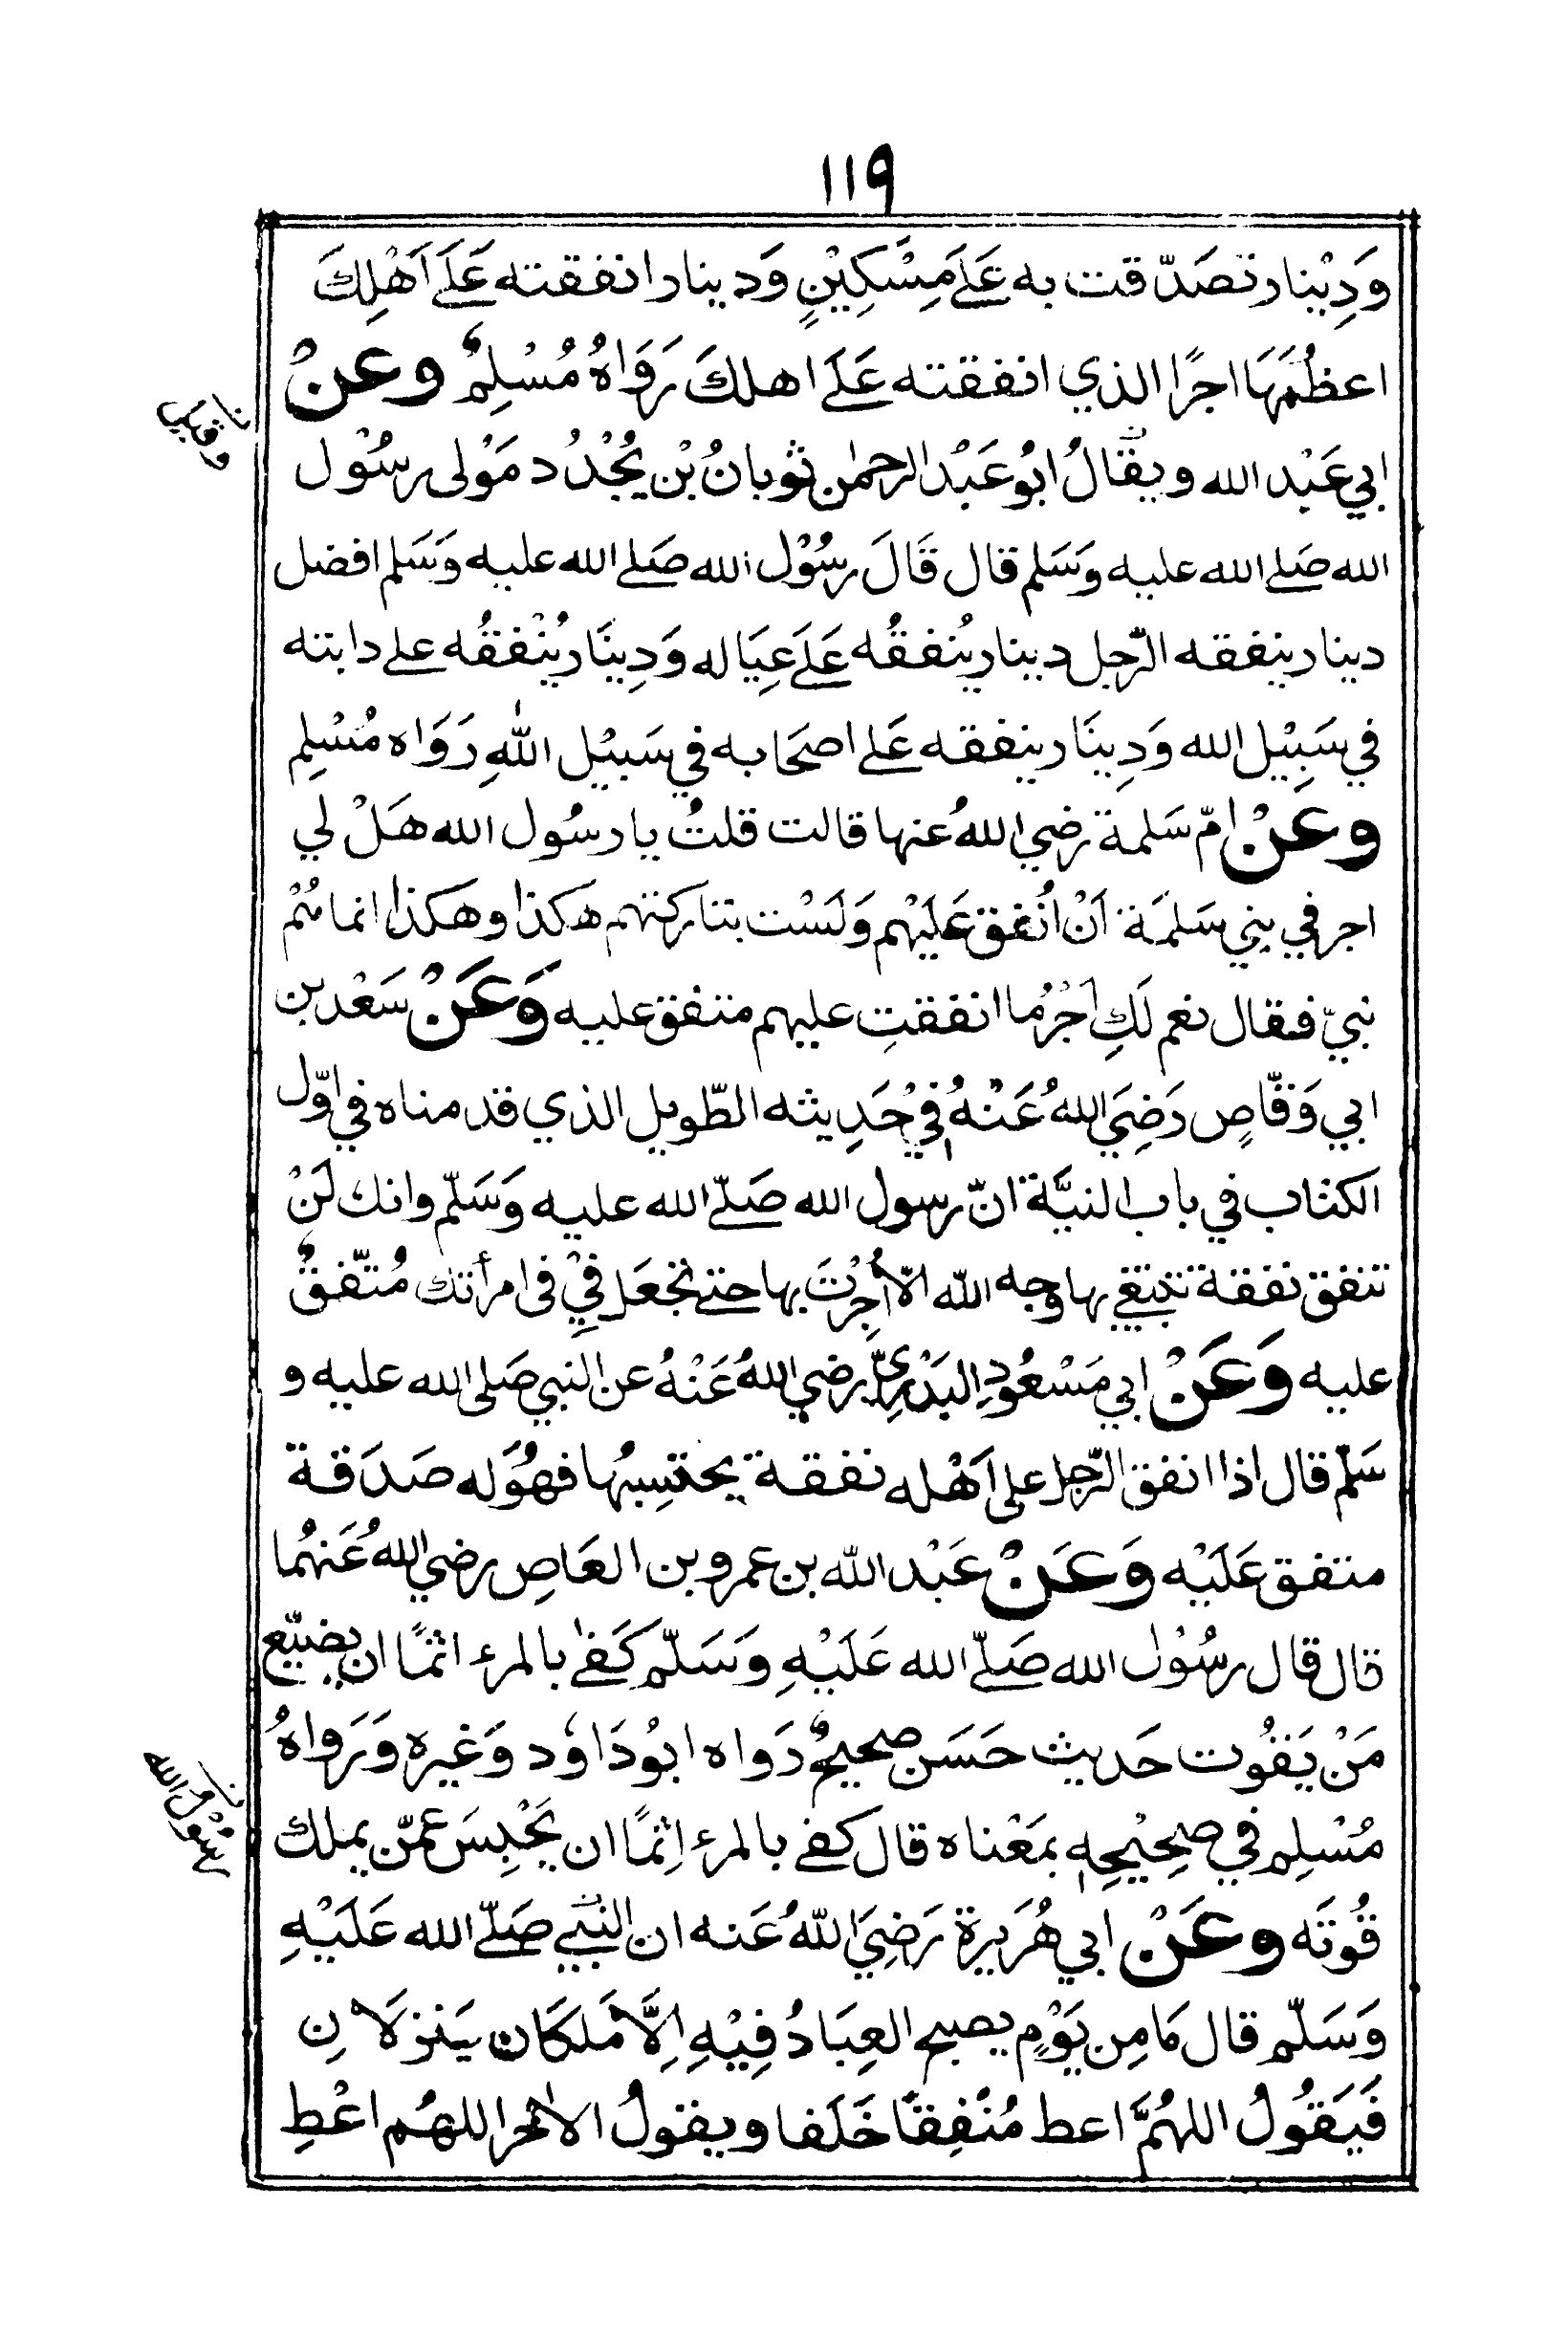 ١١٩
وَدِيْنار تصَدّقت به عَلَے مِسْكِيْنٍ وَدينار انفقته عَلَے اَهْلِكَ
اعظُمَهَا اجرًا الذي انفقته عَلَے اهلكَ رَوَاهُ مُسْلِمٌ وعنْ
ابي عَبْد الله ويقَالُ ابُو عَبْد الرحمٰن ثوبانُ بْن بُجْدُد مَوْلى رسُوْل
الله صَلے الله عليه وَسَلم قال قَالَ رسُوْل الله صَلے الله عليه وَسَلم افضل
دينار ينفقه الرّجل دينار يُنفقُه عَلَے عِيَاله وَدِينَار يُنْفقُه علے دابته
في سَبِيْل الله وَدِينَار ينفقه عَلے اصحَابه في سَبيْل اللهِ رَوَاه مُسْلِم
وعنْ امّ سَلمة رضي اللهُ عنها قالت قلتُ يا رسُول الله هَلْ لي
اجر في بني سَلمَة اَنْ اُنفق عَلَيْهم وَلَسْت بتاركتهم هكذا وهكذا انما هُمْ
بَنيّ فقال نعم لَكِ اَجْرُ ما انفقتِ عليهم متفق عليه وَعَنْ سَعْد بن
ابي وَقّاصٍ رَضِيَ اللهُ عَنْهُ فِيْ حَدِيثه الطّويل الذي قدمناه في اوّل
الكتاب في باب النيَّة انّ رسول الله صَلّے الله عليه وَسَلّم وانك لَنْ
تنفق نفقة تبتغي بها وجه الله الّا اُجِرْتَ بها حتے تجعَل فِيْ في امرأتك مُتّفقٌ
عليه وَعَنْ ابي مَسْعُودِ البَدْرِيِّ رضي اللهُ عَنْهُ عن النبي صَلى الله عليه و
سَلّم قال اذا انفق الرّجل على اَهْله نفقة يحتسِبُها فهُوَ له صَدَقة
متفق عَلَيْه وَعَنْ عَبْد الله بن عمرو بن العَاصِ رضي اللهُ عَنهُما
قال قال رسُوْل الله صَلّے الله عَلَيْهِ وَسَلّم كَفے بالمرء اثمًا ان يضيّع
مَنْ يَقُوت حَديث حَسَن صحيحٌ رَواه ابُو دَاوٗد وَغيره وَرَواهُ
مُسْلِم في صحِيْحِهٖ بمَعْناه قال كفے بالمرء اِثمًا ان يَحْبِسَ عمّن يملك
قُوتَه وعَنْ ابي هُرَيرة رَضِيَ اللهُ عَنه ان النبي صَلّے الله عَلَيْهِ
وَسَلّم قال مَا مِن يَوْمٍ يصبح العِبَادُ فِيْهِ اِلَّا مَلكَان يَنزلَانِ
فَيَقُولُ اللهُمَّ اعط مُنْفِقًا خَلَفا ويقولُ الاٰخر اللهُم اعْطِ